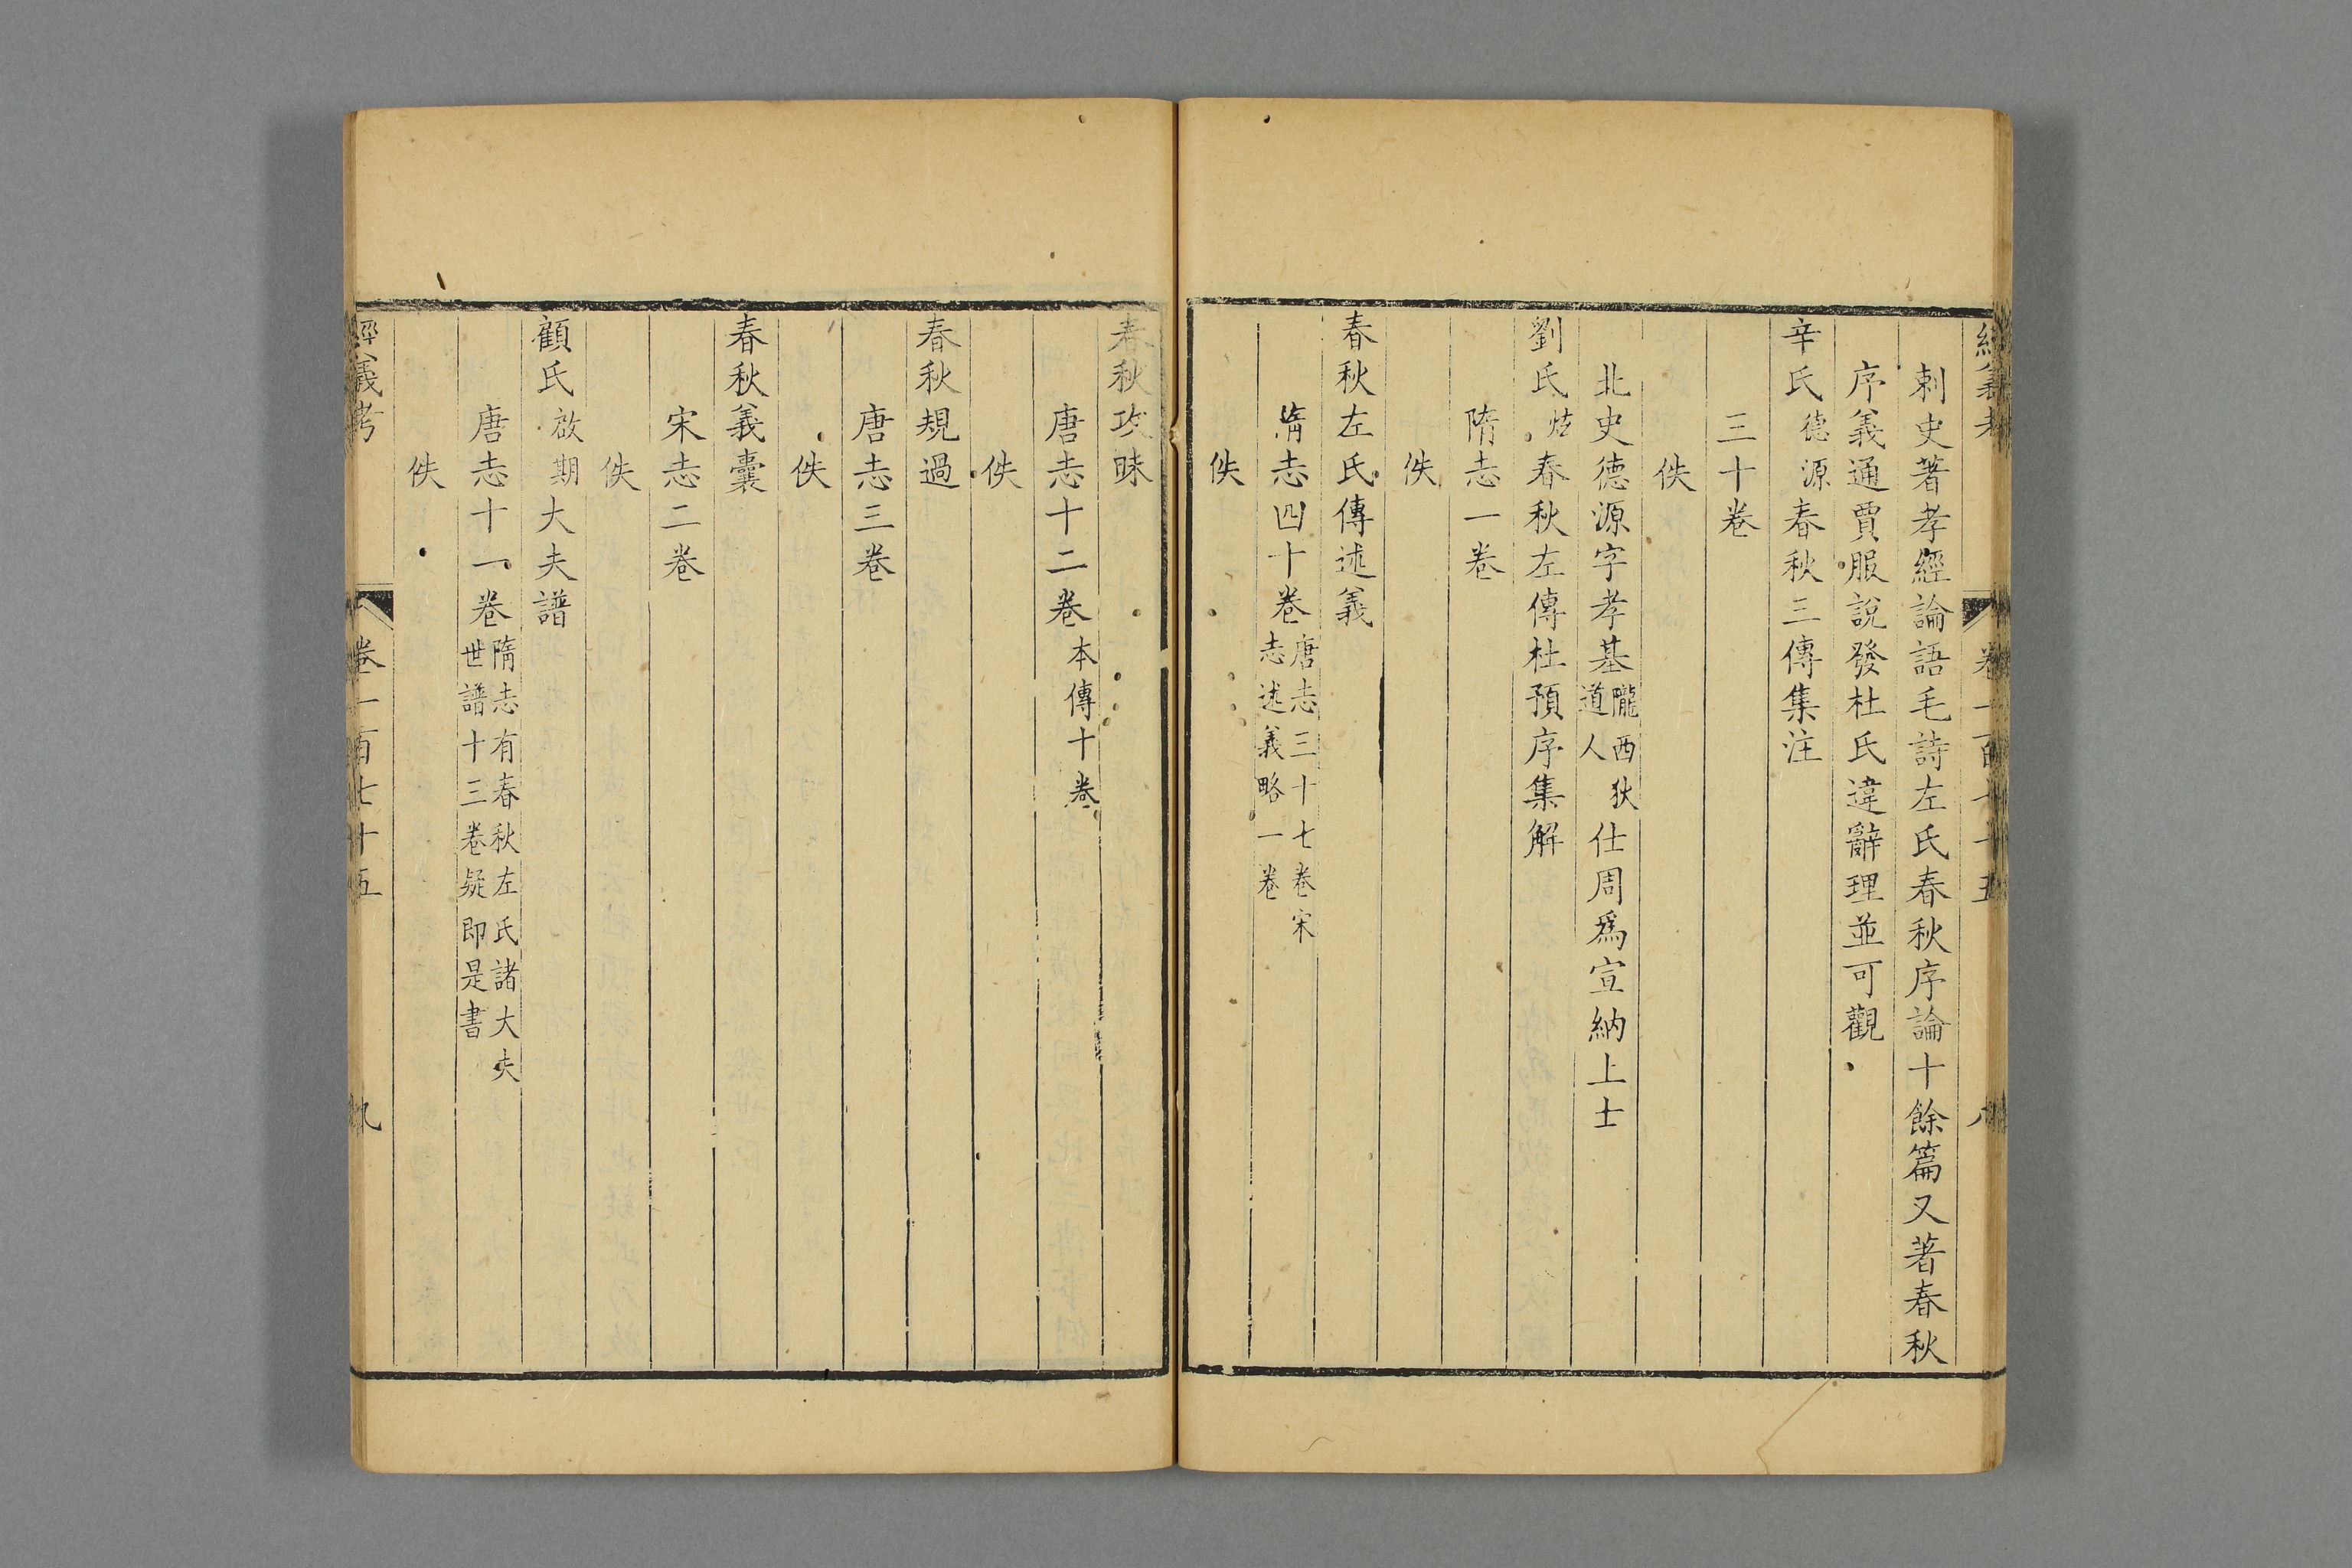 經義考 卷一百七十五 八
刺史著孝經論語毛詩左氏春秋序論十餘篇又著春秋
序義通賈服說發杜氏違辭理並可觀
辛氏德源春秋三傳集注
三十卷
佚
北史德源字孝基隴西狄道人仕周爲宣納上士
劉氏炫春秋左傳杜預序集解
隋志一卷
佚
春秋左氏傳述義
隋志四十卷唐志三十七卷宋志述義略一卷
佚
春秋攻昧
唐志十二卷本傳十卷
佚
春秋規過
唐志三卷
佚
春秋義囊
宋志二卷
佚
顧氏啟期大夫譜
唐志十一卷隋志有春秋左氏諸大夫世譜十三卷疑即是書
佚
經義考 卷一百七十五 九